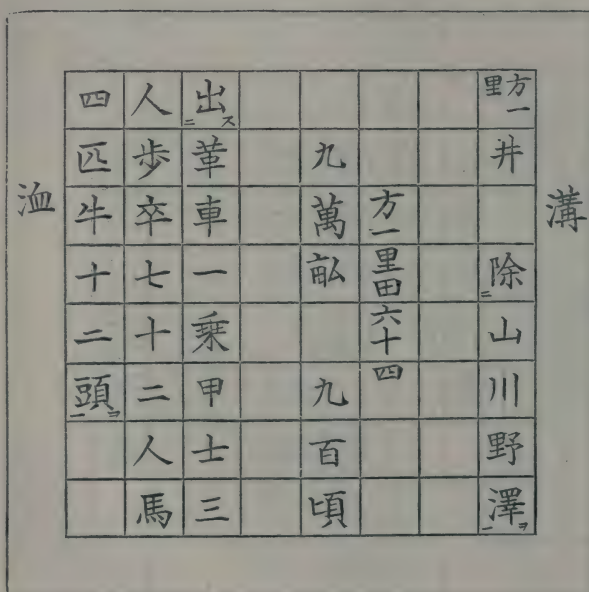 溝
方一里
井
除二山川野澤一ヲ
方一里田六十四
九萬畆
九百頃
出二ス革車一乗甲士三
人歩卒七十二人馬
四匹牛十二頭一ヲ
洫